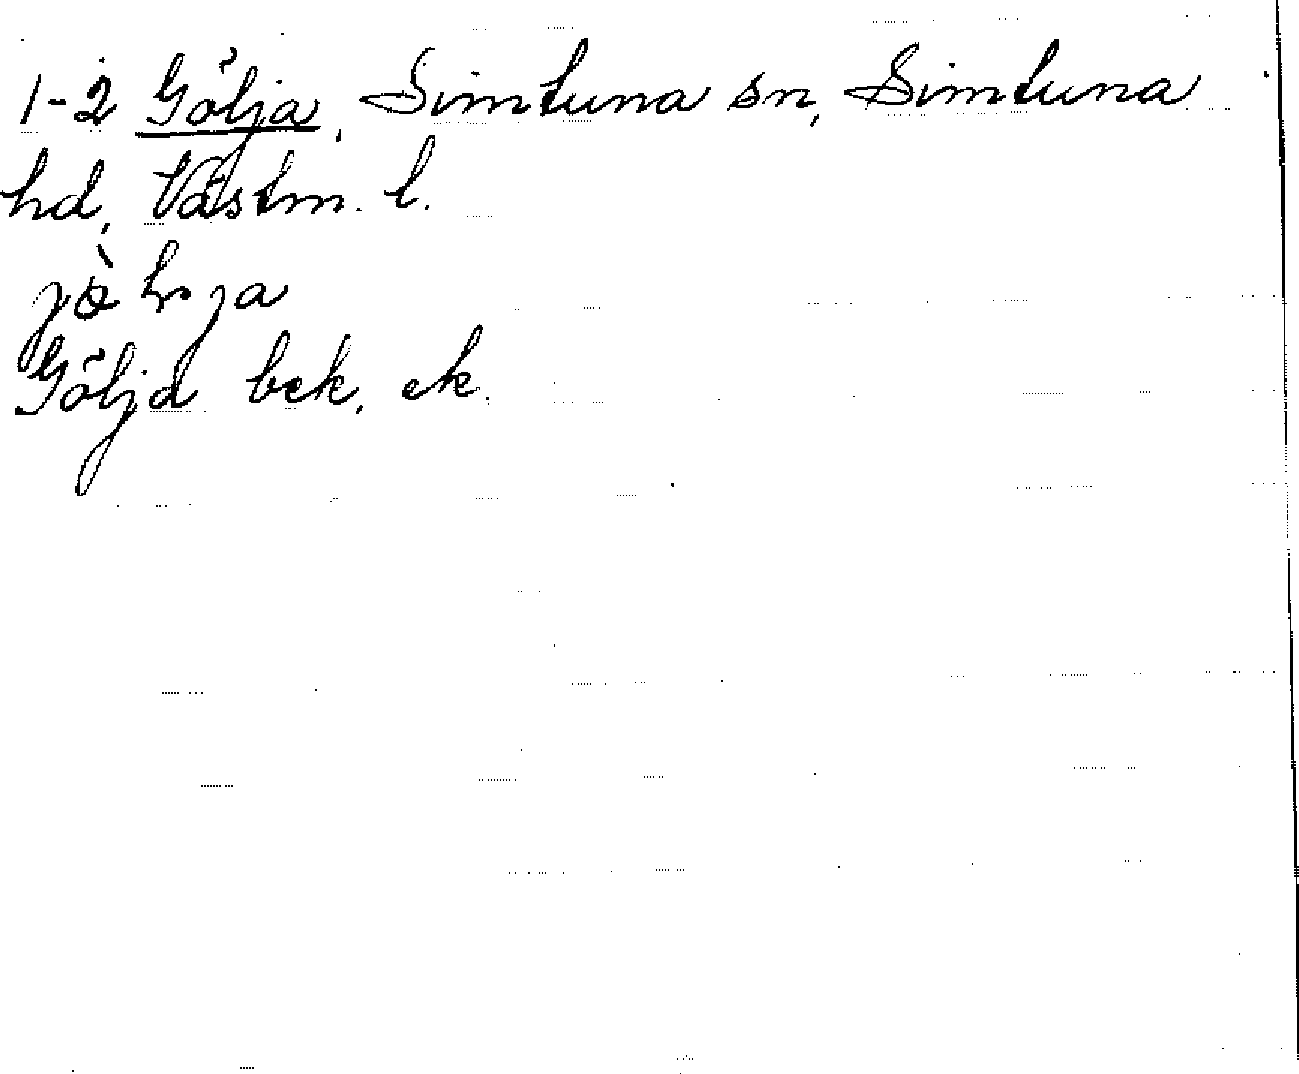 1-2 Gölja, Simtuna sn, Simtuna
hd, Västm. l.
Gölja bek, ek.